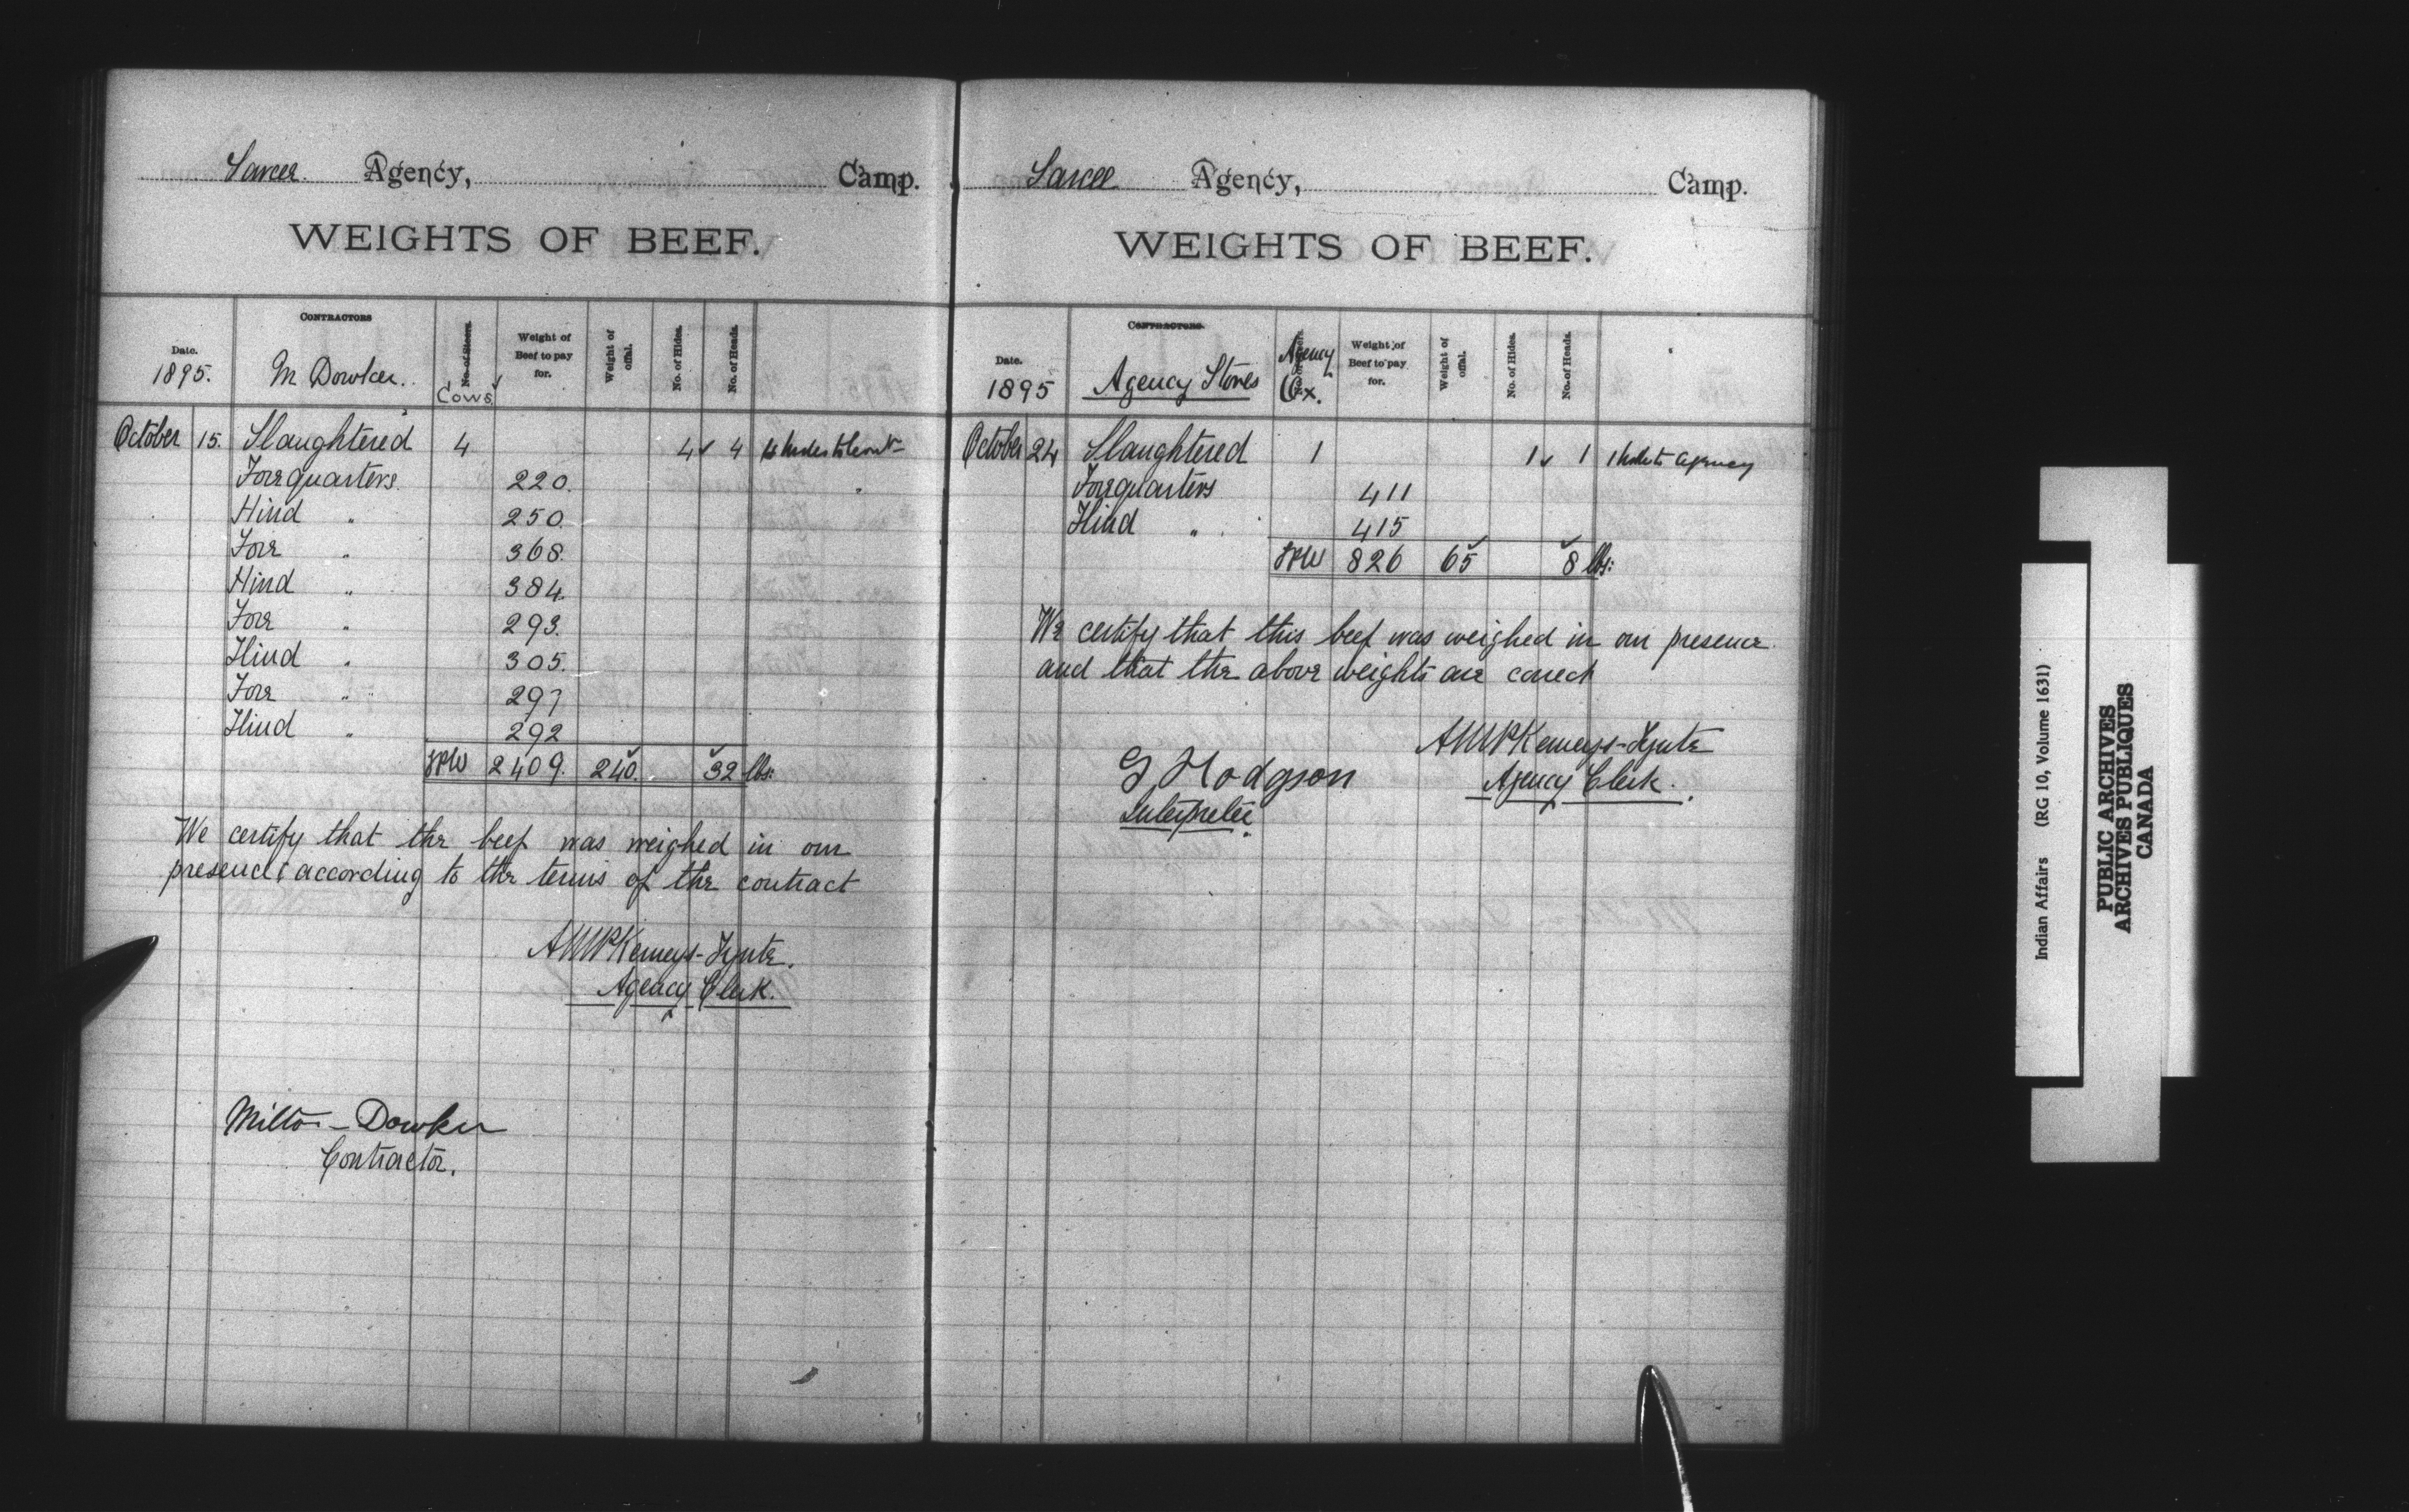 Sarcee Agency, Camp.
WEIGHTS OF BEEF.
Date. 1895. CONTRACTORS M Dowker. No. of Steers. Cows Weight of Beef to pay for. Weight of offal. No. of Hides. No. of Heads.
October 15. Slaughtered 4 4 ✓ 4 4 hides to Cont
Forequarters. 220.
Hind " 250.
Fore " 368.
Hind " 384.
Fore " 293.
Hind " 305.
Fore " 297
Hind " 292
2409. 240. 32 lbs:
We certify that the beef was weighed in our
presence & according to the terms of the contract
AWPKemeys-Tynte.
Agency Clerk.
Milton Dowker
Contractor.
Sarcee Agency, Camp.
WEIGHTS OF BEEF.
Date. 1895 CONTRACTORS. Agency Stores Agency Ox. Weight of Beef to pay for. Weight of offal. No. of Hides. No. of Heads.
October 24 Slaughtered 1 1 ✓ 1 1 hide to Agency
Forequarters 411
Hind " 415
826 65 8 lbs:
We certify that this beef was weighed in our presence.
and that the above weights are correct
AWPKemeys-Tynte
Agency Clerk.
G Hodgson
Interpreter.
Indian Affairs (RG 10, Volume 1631)
PUBLIC ARCHIVES
ARCHIVES PUBLIQUES
CANADA